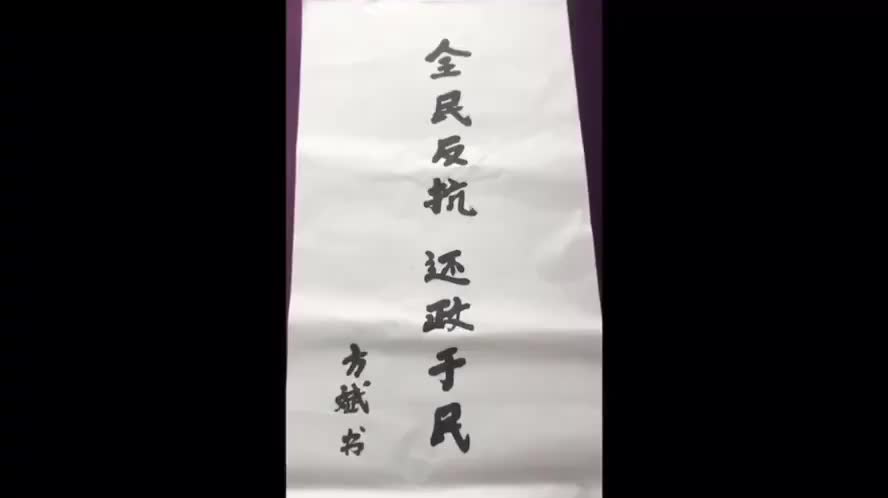 全民反抗 还政于民
方斌书